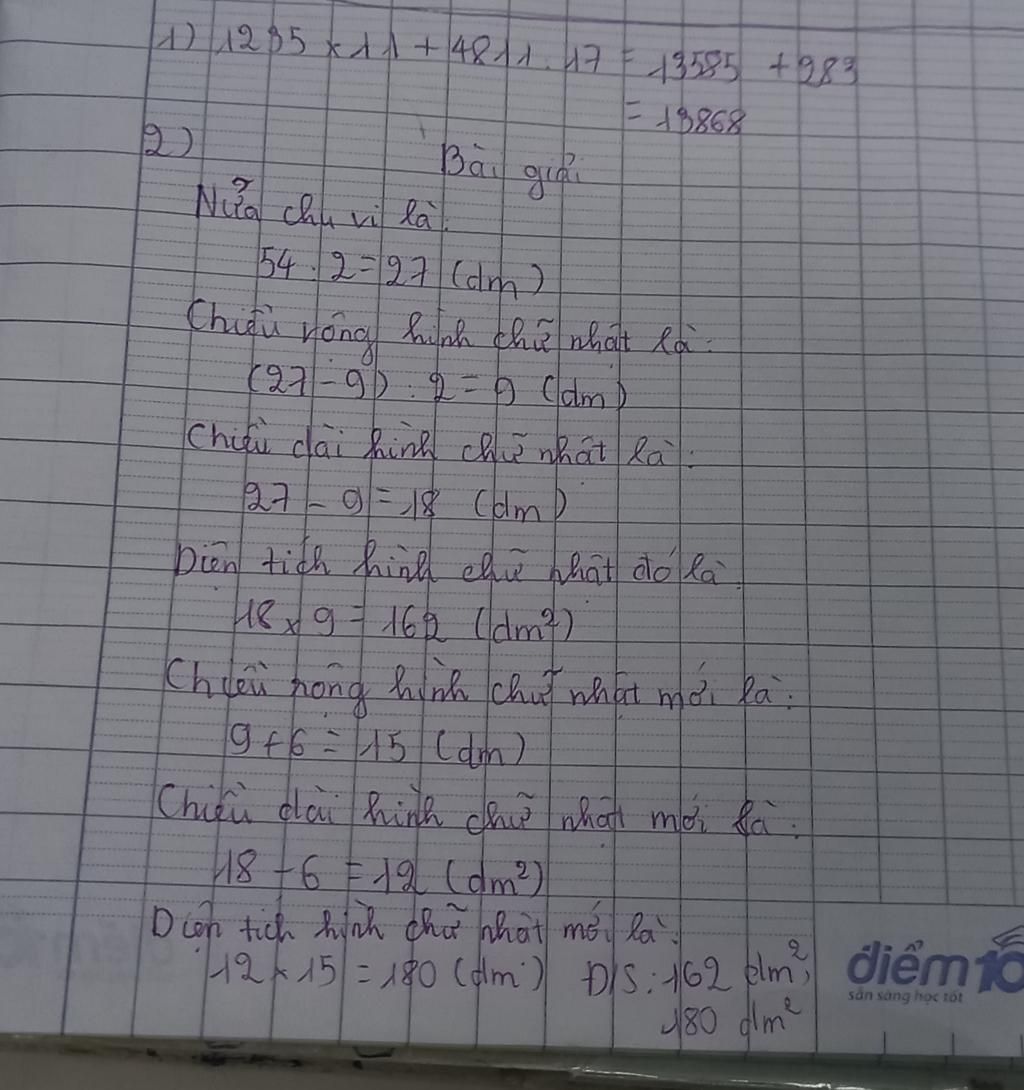 1) 1235 x 11 + 4811 : 17 = 13585 + 283
= 13868
2)
Bài giải
Nửa chu vi là:
54 : 2 = 27 (dm)
Chiều rộng hình chữ nhật là:
(27 - 9) : 2 = 9 (dm)
Chiều dài hình chữ nhật là:
27 - 9 = 18 (dm)
Diện tích hình chữ nhật đó là
18 x 9 = 162 (dm²)
Chiều rộng hình chữ nhật mới là:
9 + 6 = 15 (dm)
Chiều dài hình chữ nhật mới là:
18 - 6 = 12 (dm²)
Diện tích hình chữ nhật mới là:
12 x 15 = 180 (dm²) Đ/S: 162 dm²;
180 dm²
điểm 10
sẵn sàng học tốt